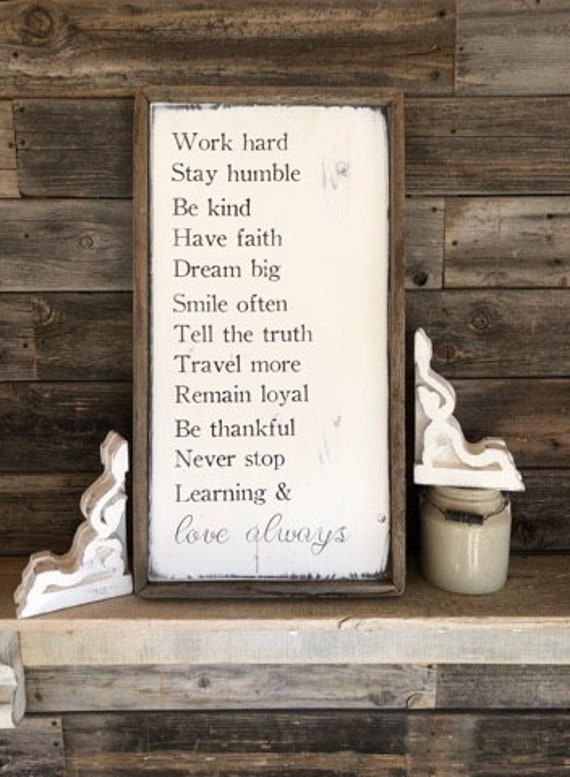 Work hard
Stay humble
Be kind
Have faith
Dream big
Smile often
Tell the truth
Travel more
Remain loyal
Be thankful
Never stop
Learning &
love always